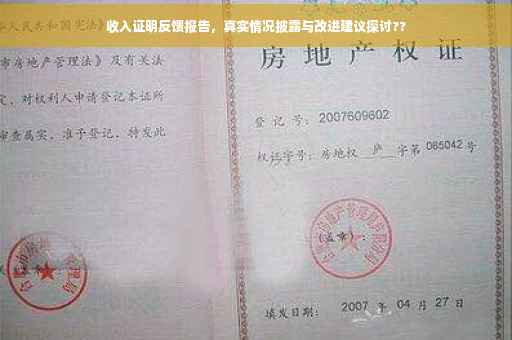 收入证明反馈报告，真实情况披露与改进建议探讨??
人民共和国宪法》
市房地产管理法》及有关
定，对权利人申请登记本证所
审查属实，准予登记，特发此
房地产权证
登记号：2007609602
权证字号：房地权 庐 字第 085042 号
(盖章)：
填发日期：2007 年 04 月 27 日